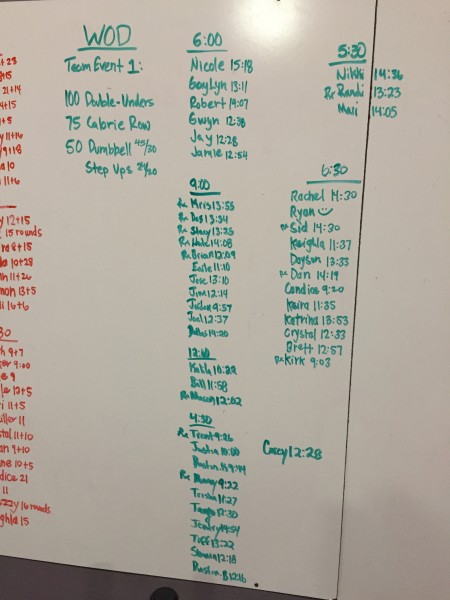 WOD
Team Event 1:
100 Double-Unders
75 Calorie Row
50 Dumbbell 45/30
Step Ups 24/20
6:00
Nicole 15:18
GayLyn 13:11
Robert 14:07
Gwyn 12:38
Jay 12:28
Jamie 12:54
9:00
Rx Mris 13:55
Rx Stacy 13:25
Rx Brian 12:09
Earle 11:10
Jose 13:10
Jim 12:14
9:57
Joel 12:37
14:20
12:10
Kahla 10:22
Bill 11:58
Rx Mason 12:02
4:30
Rx Trent 9:26
Justin 10:00
Rx Manny 9:22
Trisha 11:27
Tango 12:30
Tiff 13:22
12:18
Dustin B 12:16
5:30
Nikki 14:36
Rx Randi 13:23
Mari 14:05
6:30
Rachel 14:30
Ryan
Rx Sid 14:30
Keighla 11:37
Dayson 13:33
Rx Dan 14:19
Candice 9:20
Keira 11:35
Katrina 13:53
Crystal 12:33
Brett 12:57
Rx Kirk 9:03
Corey 12:28
21+14
4+15
+5
11+16
9+18
11+6
12+15
15 rounds
8+15
10+28
11+26
13+5
16+6
30
9+7
9:00
12+5
11+5
11
11+10
9+10
10+5
21
11
16 rounds
15